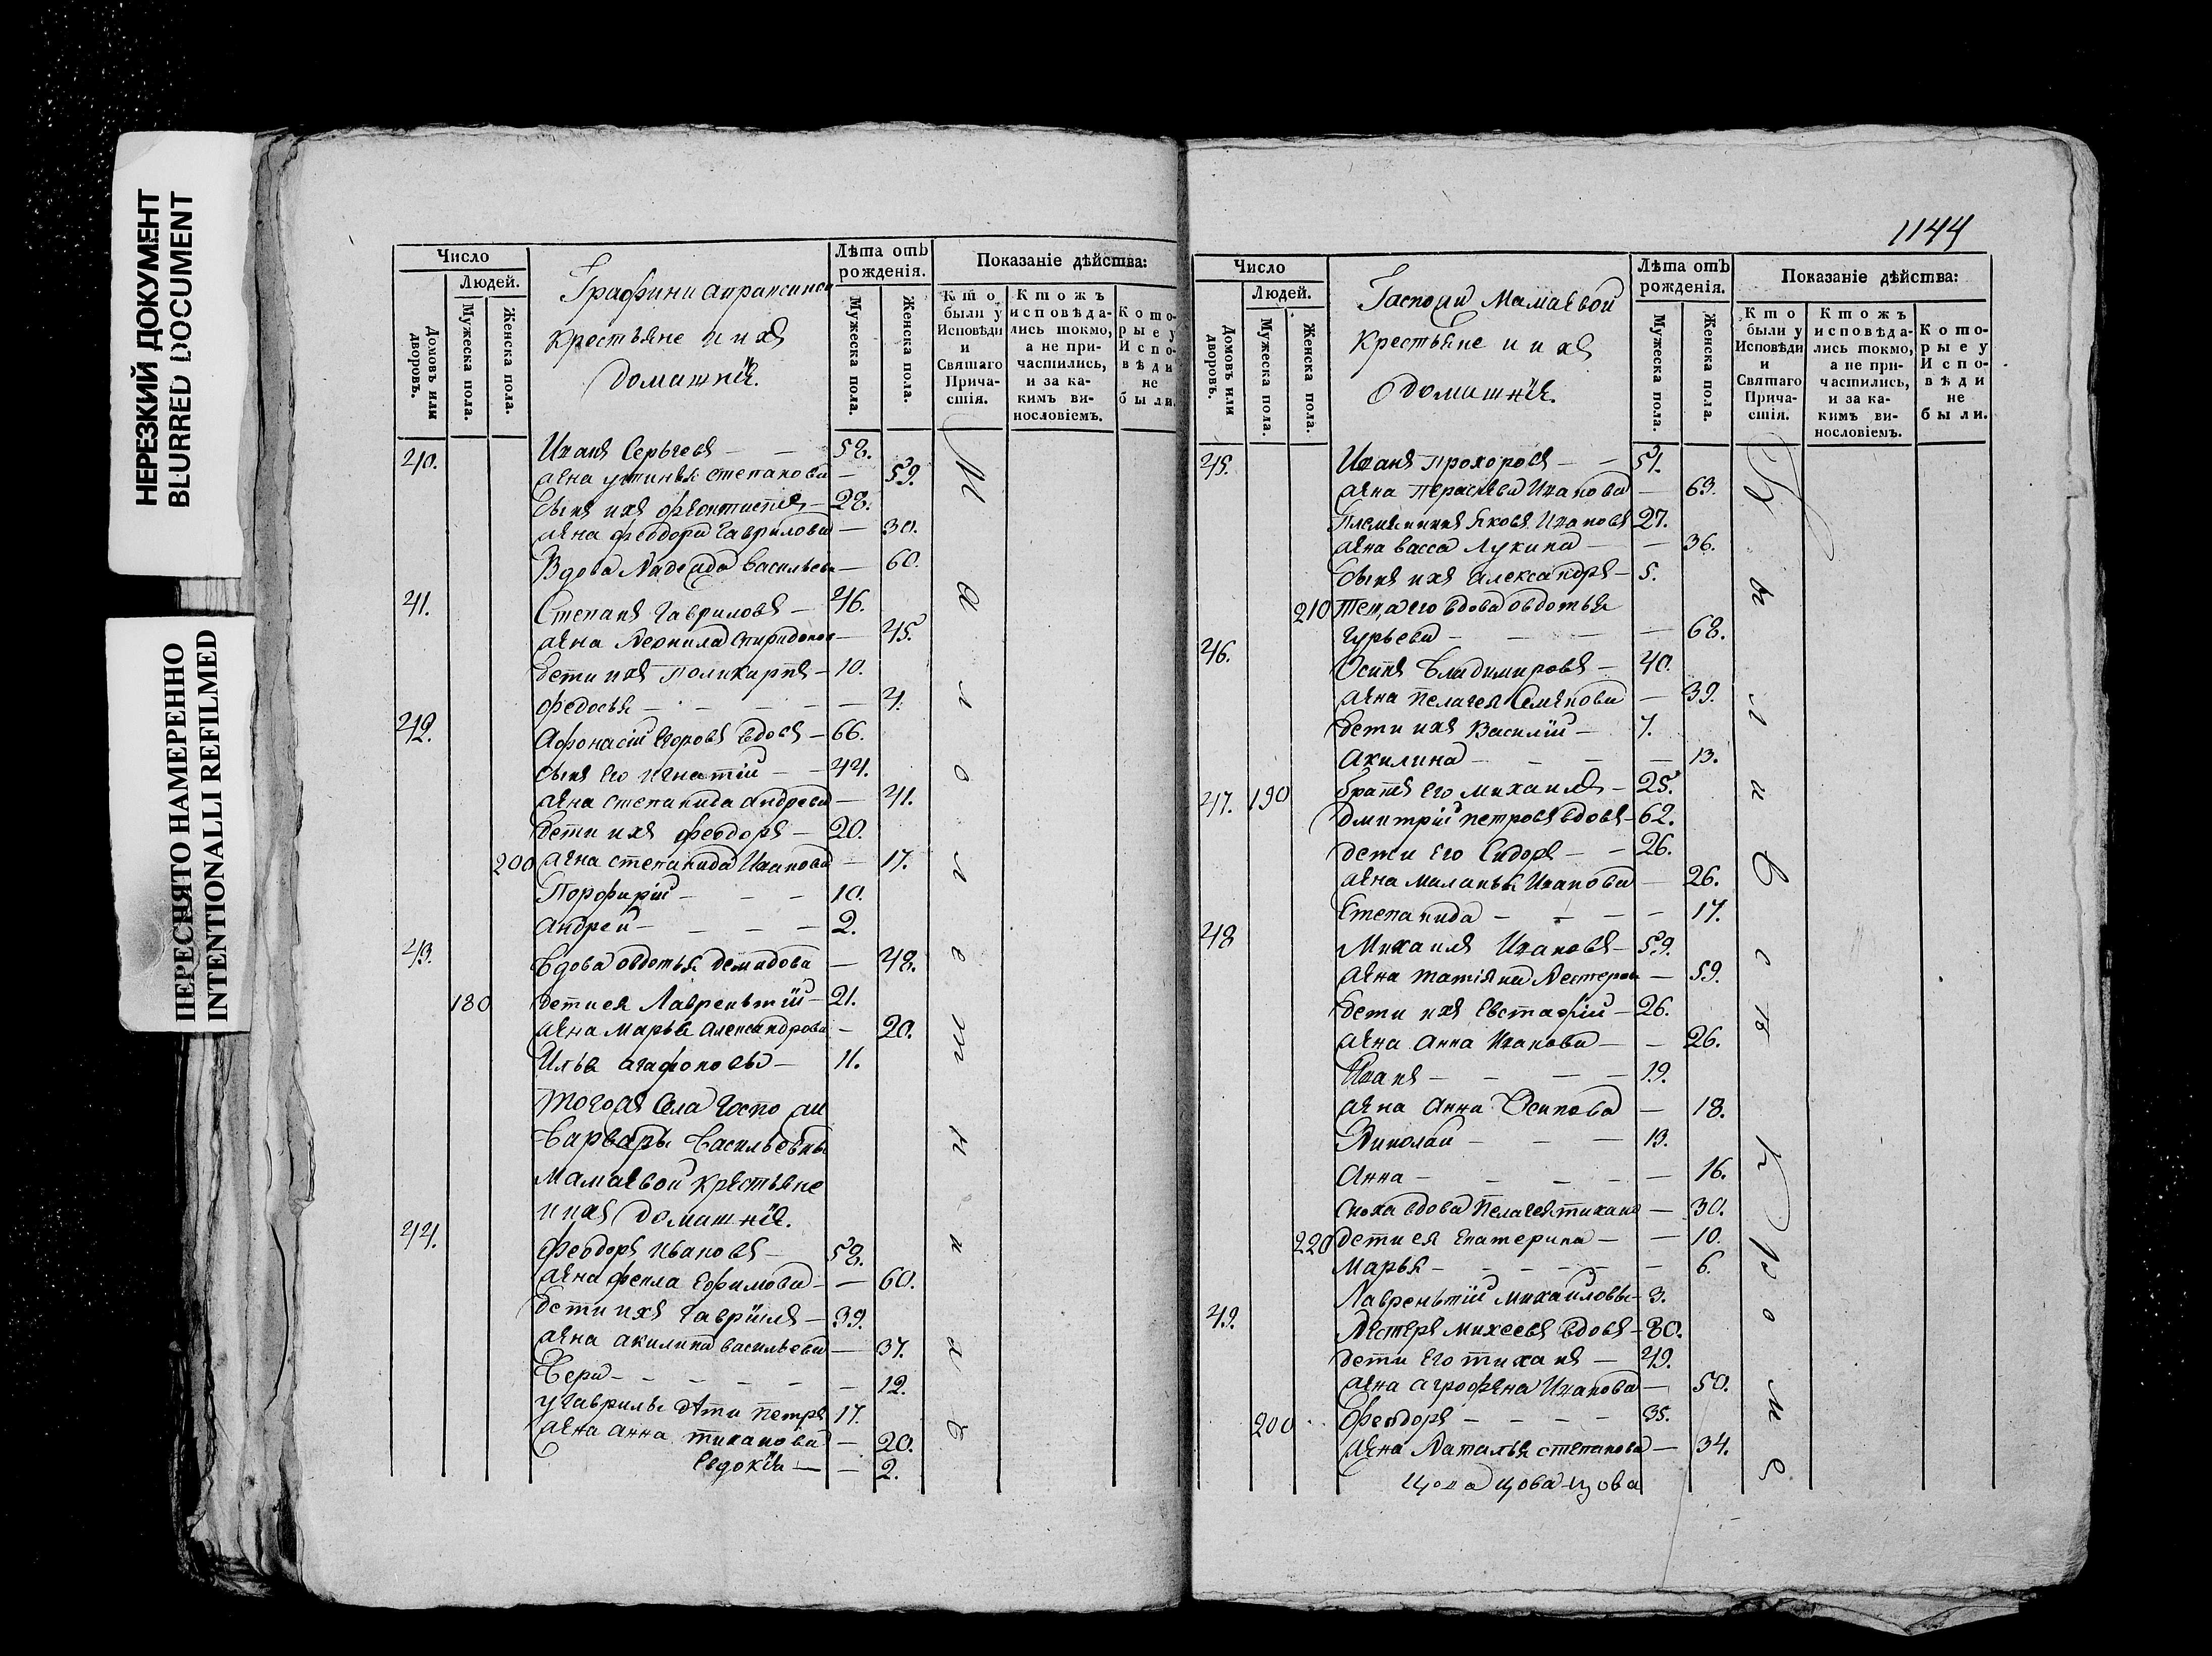 НЕРЕЗКИЙ ДОКУМЕНТ
BLURRED DOCUMENT
ПЕРЕСНЯТО НАМЕРЕННО
INTENTIONALLI REFILMED
Число
Людей.
Домовъ или дворовъ.
Мужеска пола.
Женска пола.
Графини Апраксиной
крестьяне и ихъ
домашнїе.
Лѣта отъ рожденія.
Мужеска пола.
Женска пола.
Показаніе дѣйства:
Кто были у Исповѣди и Святаго Причастія.
Ктожъ исповѣдались токмо, а не причастились, и за какимъ винословіемъ.
Которые у Исповѣди не были.
40. Иванъ Сергѣевъ — — 58.
жена устинья степанова — 59.
сынъ ихъ феоктистъ — 28.
жена феодора гаврилова — 30.
Вдова Надежда васильева — 60.
41. Степанъ гавриловъ — 46.
жена Неонила спиридонов — 45.
дети ихъ поликарпъ — 10.
федосья — — — — 4.
42. Афонасій егоровъ вдовъ — 66.
сынъ его игнатій — — 44.
жена степанида андреева — 41.
дети ихъ феодоръ — 20.
200 жена степанида Иванова — 17.
Порфирій — — — 10.
андрей — — — — 2.
43. вдова овдотья демидова — 48.
180 дети ея Лаврентїй — 21.
жена марья александрова — 20.
Илья агафоновъ — 11.
тогожъ села госпожи
варвары васильевны
мамаевой крестьяне
и ихъ домашнїе.
44. феодоръ ивановъ — 58.
жена фекла ефимова — — 60.
дети ихъ гаврїилъ — 39.
жена акилина васильева — 37.
Вера — — — — — 12.
у гаврилы дѣти петръ 17.
жена анна тиханова — 20.
евдокїа — — 2.
М а л о л е т н и х ъ
1144
Число
Людей.
Домовъ или дворовъ.
Мужеска пола.
Женска пола.
Госпожи Мамаевой
крестьяне и ихъ
домашнїе.
Лѣта отъ рожденія.
Мужеска пола.
Женска пола.
Показаніе дѣйства:
Кто были у Исповѣди и Святаго Причастія.
Ктожъ исповѣдались токмо, а не причастились, и за какимъ винословіемъ.
Которые у Исповѣди не были.
45. Иванъ прохоровъ — — 57.
жена Парасковья Иванова — 63.
племянникъ яковъ Ивановъ 27.
жена васса Лукина — — 36.
сынъ ихъ александръ — 5.
210 теща его вдова овдотья
гурьева — — — — 68.
46. Осипъ владимировъ — 40.
жена пелагея Семенова — 39.
дети ихъ Василїй — 7.
Акилина — — — — 13.
братъ его михаилъ — 25.
47. 190 дмитрїй петровъ вдовъ — 62.
дети его Сидоръ — — 26.
жена маланья Иванова — 26.
Степанида — — — — 17.
48 Михаилъ Ивановъ — 59.
жена татїяна Нестеров — 59.
дети ихъ Евстафїй — 26.
жена Анна Иванова — — 26.
Иванъ — — — — 19.
жена анна Осипова — 18.
Николай — — — 13.
Анна — — — — — 16.
сноха вдова пелагея тихано — 30.
220 дети ея Екатерина — — 10.
Марья — — — — — 6.
Лаврентїй михаиловъ — 3.
49. Нестеръ михеевъ вдовъ — 80.
дети его тиханъ — 49.
жена агрофена Иванова — 50.
200 феодоръ — — — — 35.
жена Наталья степанова — 34.
к р о м е